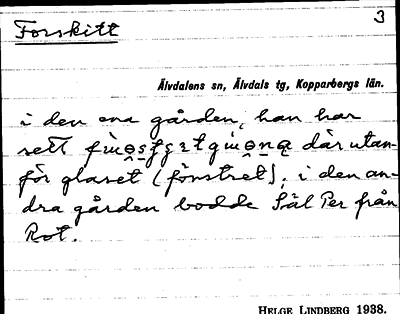 3
Forskitt
Älvdalens sn, Älvdals tg, Kopparbergs län.
i den ena gården, han har
sett där utan-
för glaset (fönstret), i den an-
dra gården bodde Säl Per från
Rot.
HELGE LINDBERG 1938.